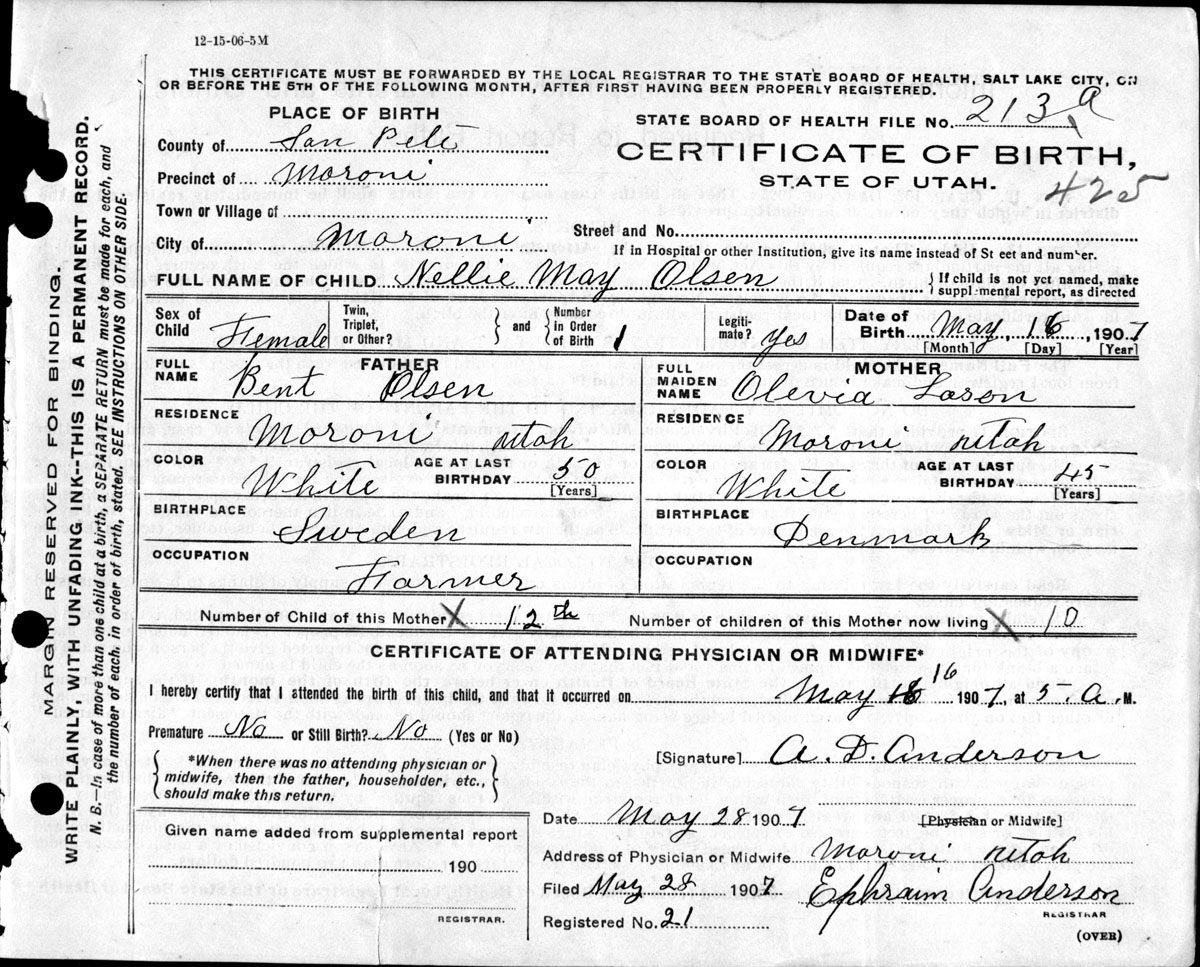 12-15-06-5M
THIS CERTIFICATE MUST BE FORWARDED BY THE LOCAL REGISTRAR TO THE STATE BOARD OF HEALTH, SALT LAKE CITY, ON
OR BEFORE THE 5TH OF THE FOLLOWING MONTH, AFTER FIRST HAVING BEEN PROPERLY REGISTERED.
PLACE OF BIRTH
STATE BOARD OF HEALTH FILE No. 213 a
County of San Pete
CERTIFICATE OF BIRTH,
Precinct of Moroni
STATE OF UTAH. 425
Town or Village of
City of Moroni Street and No.
If in Hospital or other Institution, give its name instead of St eet and number.
FULL NAME OF CHILD Nellie May Olsen { If child is not yet named, make suppl mental report, as directed
Sex of Child Female Twin, Triplet, or Other? } and { Number in Order of Birth 1 Legiti- mate? yes Date of Birth May 16 1907
[Month] [Day] [Year]
FATHER
FULL NAME Bent Olsen
RESIDENCE Moroni utah
COLOR White AGE AT LAST BIRTHDAY 50 [Years]
BIRTHPLACE Sweden
OCCUPATION Farmer
MOTHER
FULL MAIDEN NAME Olevia Lason
RESIDENCE Moroni utah
COLOR White AGE AT LAST BIRTHDAY 45 [Years]
BIRTHPLACE Denmark
OCCUPATION
Number of Child of this Mother X 12th Number of children of this Mother now living X 10
CERTIFICATE OF ATTENDING PHYSICIAN OR MIDWIFE*
I hereby certify that I attended the birth of this child, and that it occurred on May 16 16 1907, at 5 a. M.
Premature No or Still Birth? No (Yes or No)
{ *When there was no attending physician or midwife, then the father, householder, etc., should make this return. }
[Signature] A. D. Anderson
[Physician or Midwife]
Date May 28 1907
Given name added from supplemental report
190
REGISTRAR.
Address of Physician or Midwife Moroni utah
Filed May 28 1907 Ephraim Anderson
REGISTRAR
Registered No. 21
(OVER)
MARGIN RESERVED FOR BINDING.
WRITE PLAINLY, WITH UNFADING INK--THIS IS A PERMANENT RECORD.
N. B.—In case of more than one child at a birth, a SEPARATE RETURN must be made for each, and
the number of each, in order of birth, stated. SEE INSTRUCTIONS ON OTHER SIDE.